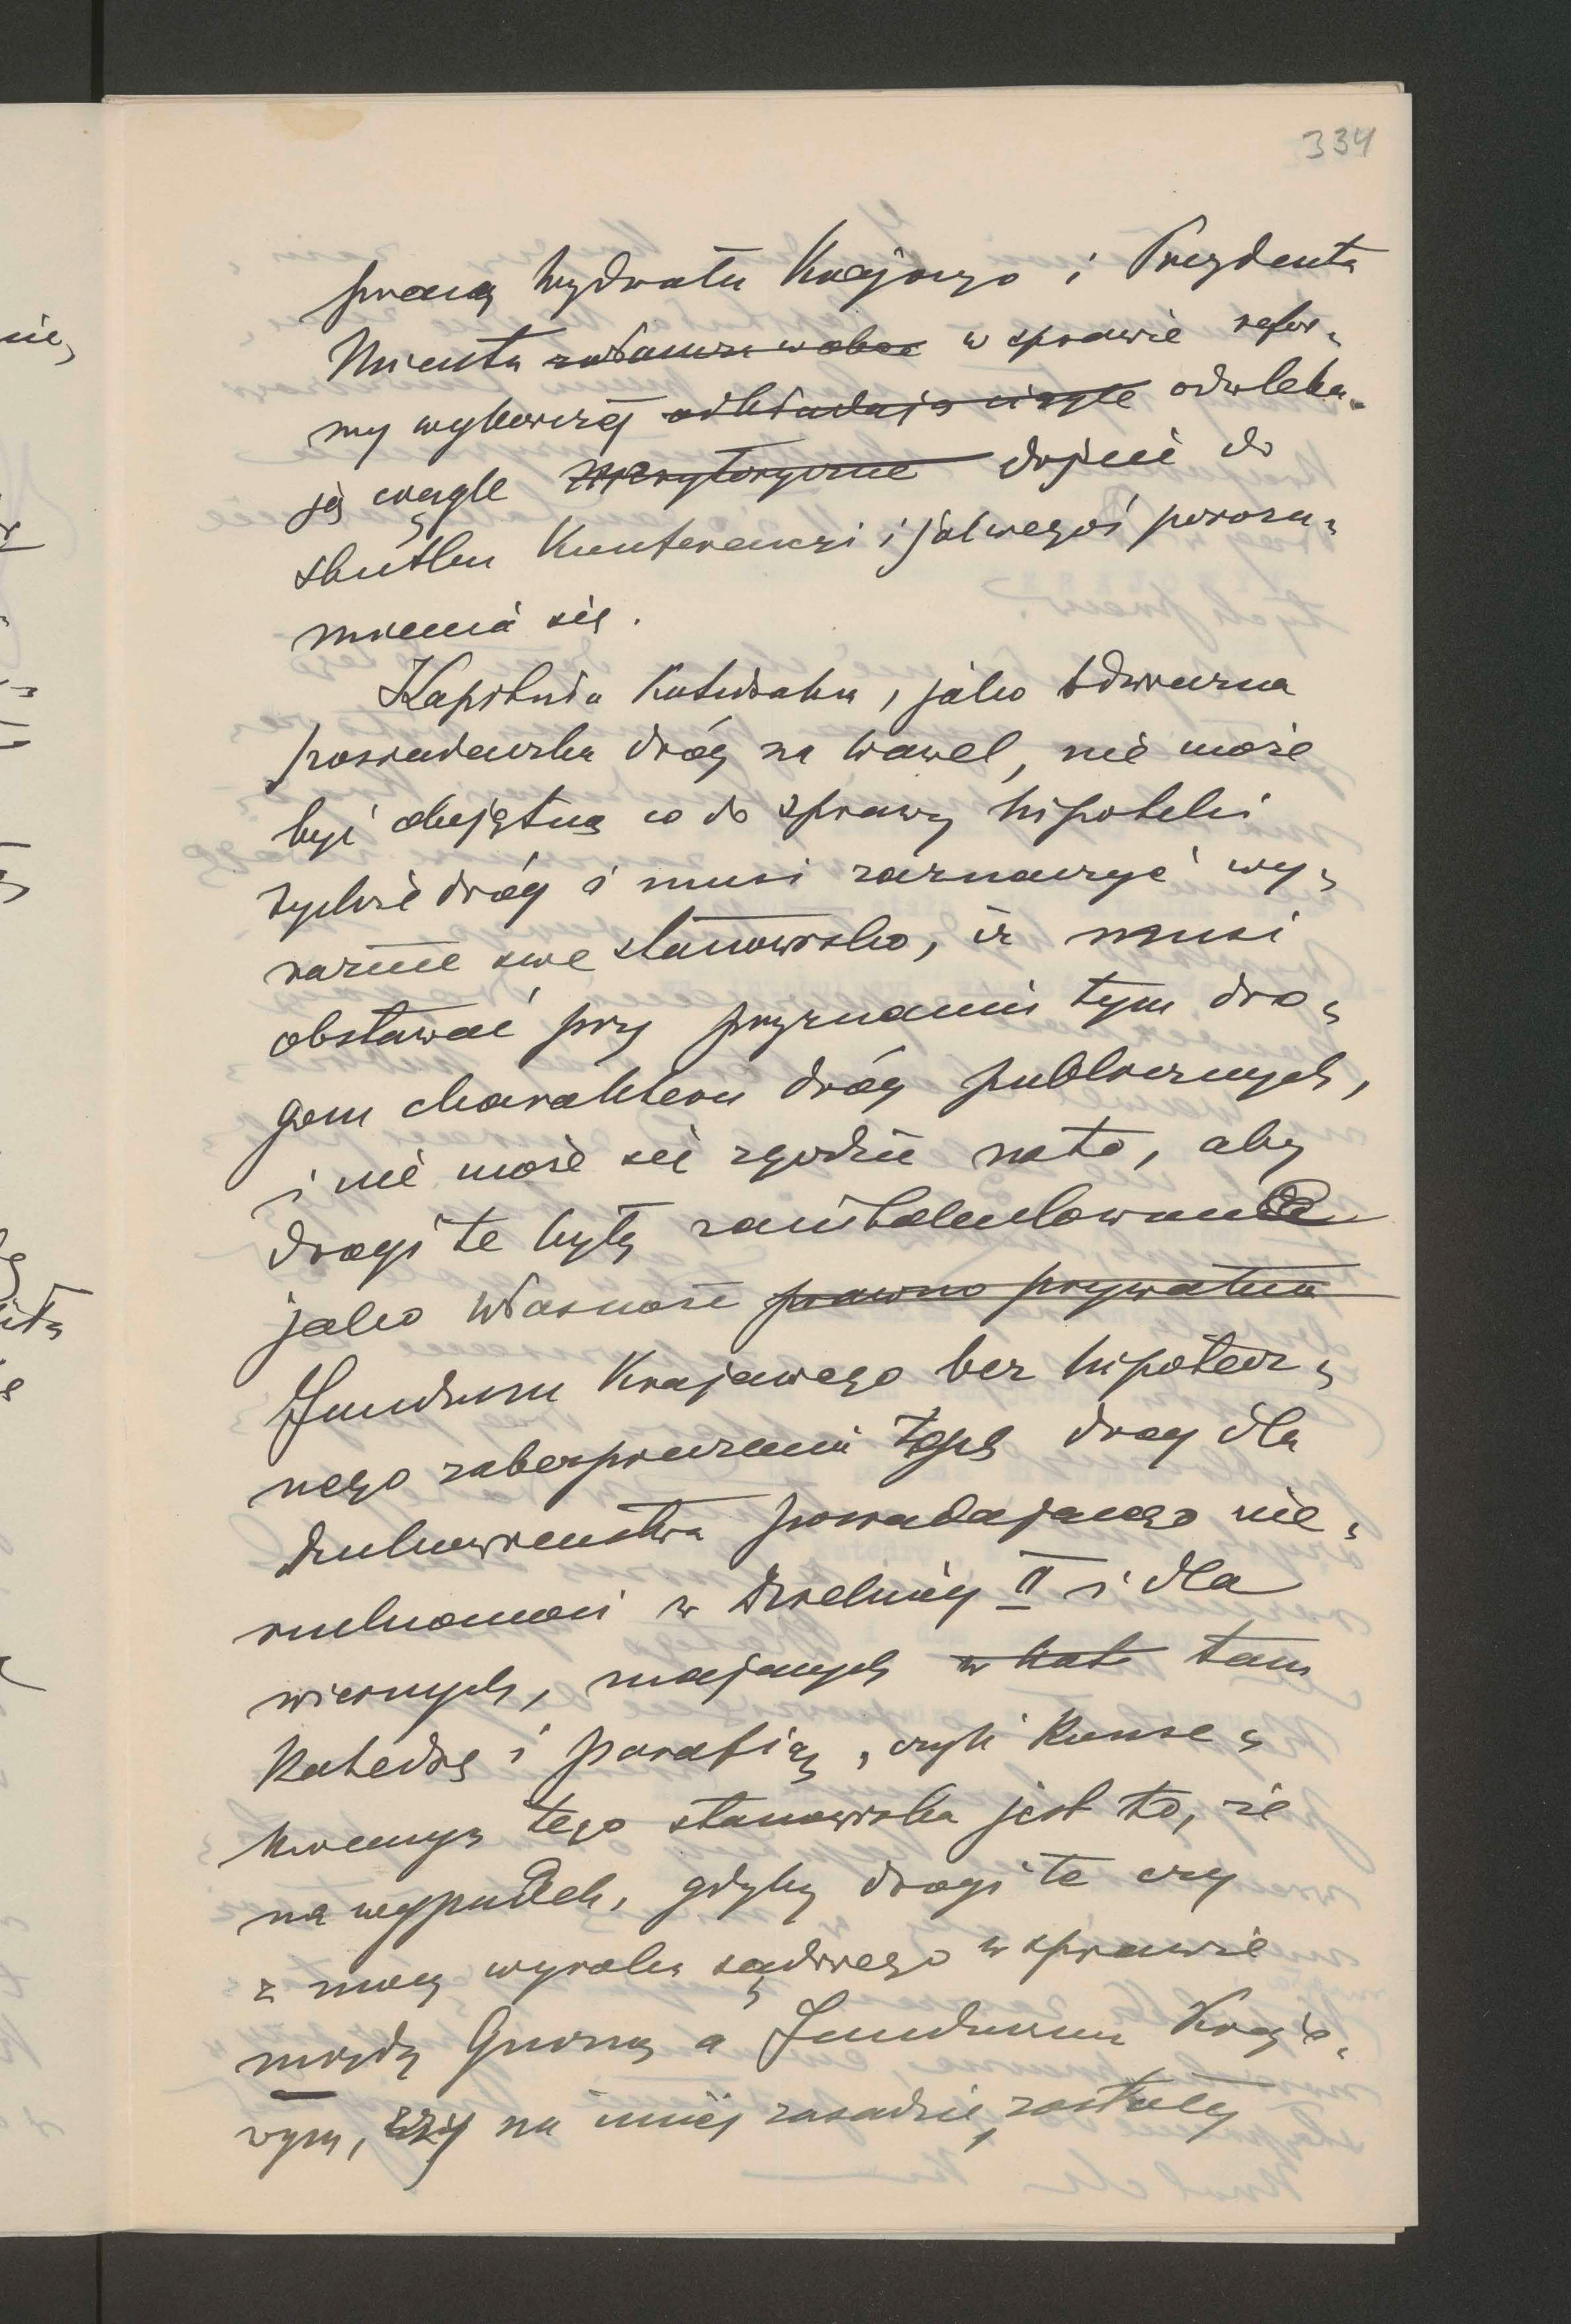 334
pracą Wydziału Krajowego i Prezydenta
Miasta w sprawie refor-
my wyborczej odkładają ciągle odwleka-
ją ciągle merytorycznie dojście do
skutku Konferencyi i jakiegoś porozu-
mienia się.
Kapituła Katedralna, jako odwieczna
posiadaczka dróg na Wawel, nie może
być obojętną co do sprawy hipoteki
tychże dróg i musi zaznaczyć wy-
raźnie swe stanowisko, iż musi
obstawać przy przyznaniu tym dro-
gom charakteru dróg publicznych,
i nie może się zgodzić na to, aby
drogi te były zaintabulowane
jako własność prawno prywatna
Funduszu Krajowego bez hipotecz-
nego zabezpieczenia tych dróg dla
Duchowieństwa posiadającego nie-
ruchomości w Dzielnicy II i dla
wiernych, mających w kate tam
Katedrę i parafię, czyli Konse-
kwencyą tego stanowiska jest to, że
na wypadek, gdyby drogi te czy
z mocy wyroku sądowego w sprawie
między Gminą a Funduszem Krajo-
wym, czy na innej zasadzie, zostały